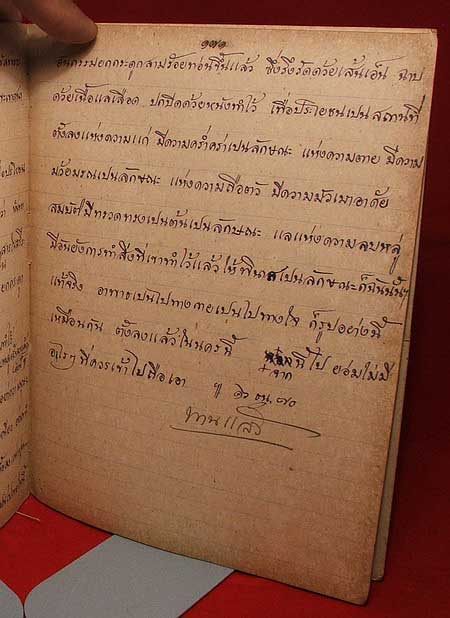 ๑๗๑
อันกรรมยกกระดูกสามร้อยท่อนขึ้นแล้ว ซึ่งรึงรัดด้วยเส้นเอ็น ฉาบ
ด้วยเนื้อแลเลือด ปกปิดด้วยหนังทำไว้ เพื่อประโยชนเปนสถานที่
ตั้งลงแห่งความแก่ มีความคร่ำคร่าเปนลักษณะ แห่งความตาย มีความ
มรณเปนลักษณะ แห่งความถือตัว มีความมัวเมาอาศัย
สมบัติมีทรวดทรงเปนต้นเปนลักษณะ แลแห่งความลบหลู่
มีอันยังการทำสิ่งที่เขาทำไว้แล้วให้พินาศเปนลักษณะก็ฉันนั้นฯ
แท้จริง อาพาธเปนไปทางกายเปนไปทางใจ ก็รูปอย่างนี้
เหมือนกัน ตั้งลงแล้วในนครนี้ จากนี้ไป ย่อมไม่มี
อะไรๆ ที่ควรเข้าไปถือเอา ๚ ๗๐